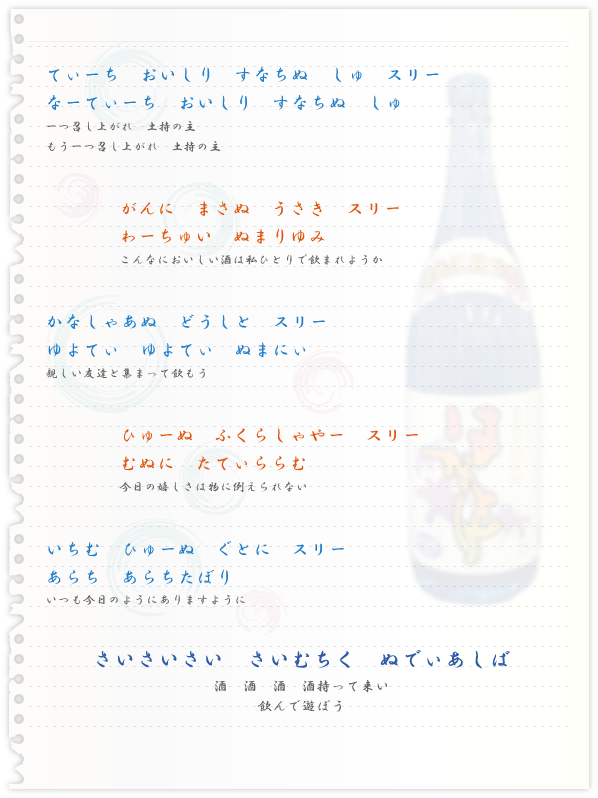 てぃーち　おいしり　すなちぬ　しゅ　スリー
なーてぃーち　おいしり　すなちぬ　しゅ
一つ召し上がれ　土持の主
もう一つ召し上がれ　土持の主
がんに　まさぬ　うさき　スリー
わーちゅい　ぬまりゆみ
こんなにおいしい酒は私ひとりで飲まれようか
かなしゃあぬ　どぅしと　スリー
ゆよてぃ　ゆよてぃ　ぬまにぃ
親しい友達と集まって飲もう
ひゅーぬ　ふくらしゃやー　スリー
むぬに　たてぃららむ
今日の嬉しさは物に例えられない
いちむ　ひゅーぬ　ぐとに　スリー
あらち　あらちたぼり
いつも今日のようにありますように
さいさいさい　さいむちく　ぬでぃあしば
酒　酒　酒　酒持って来い
飲んで遊ぼう